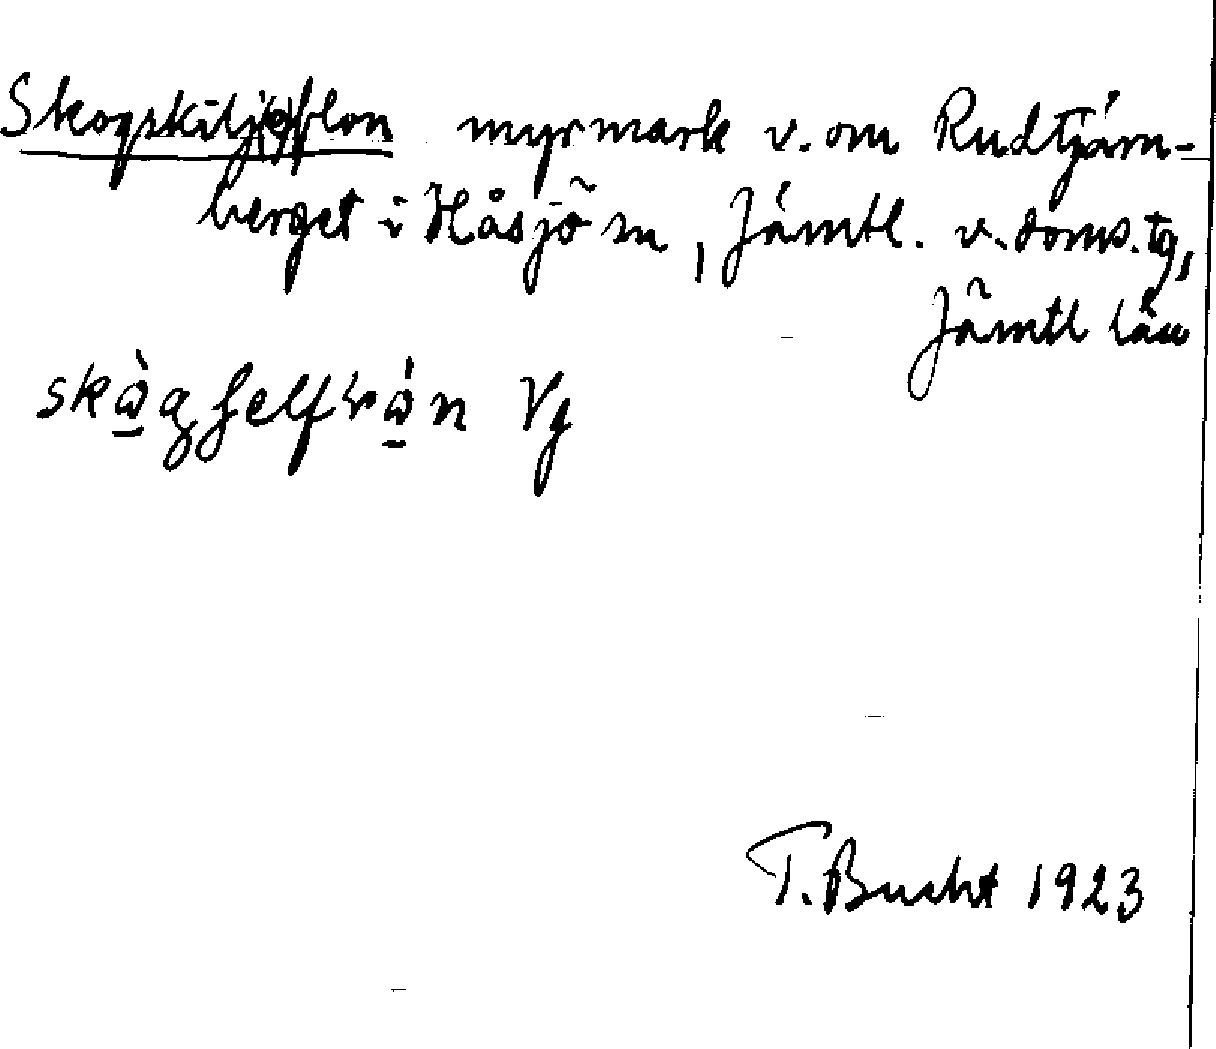 Skogskilj(e)flon myrmark v. om Rudtjärn-
berget i Håsjö sn, Jämtl. v. doms. tg,
Jämtl län
Vg
T. Bucht 1923